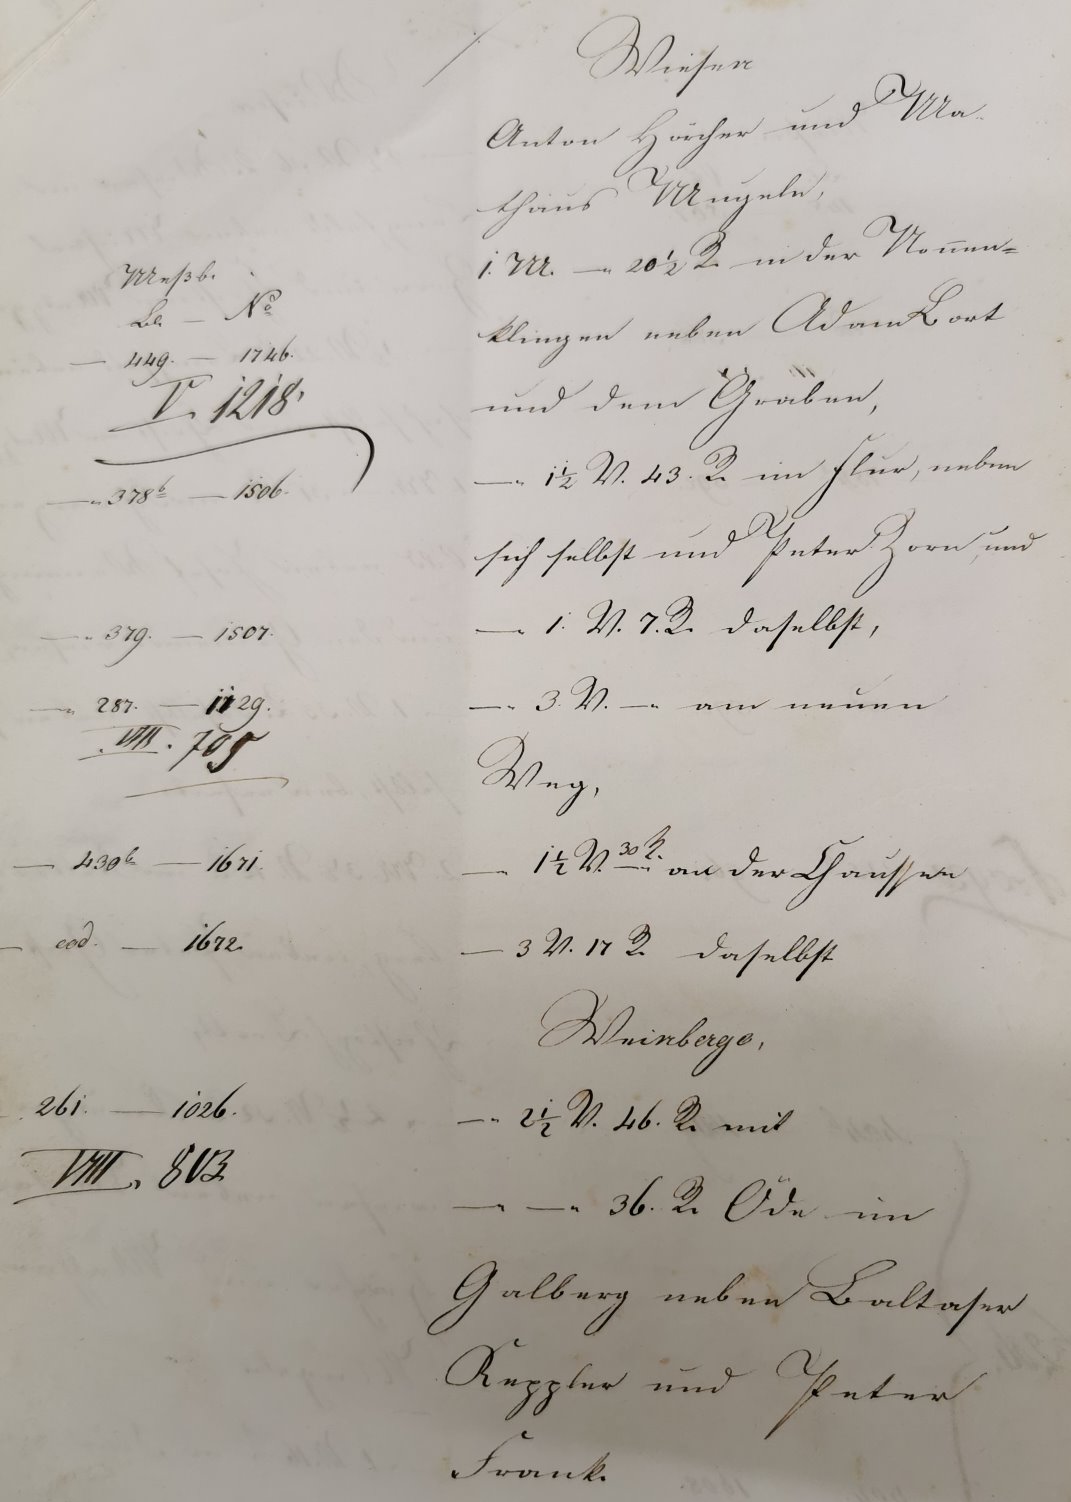 Wiesen
Anton Hörcher und Ma-
thäus Mugele,
1. M. —„ 20½ R. in der Nonnen=
klingen neben Adam Bort
und dem Graben,
Meßb.
Bl. — No
— 449. — 1746.
V. 1218.
—„ 1½ V. 43. R. im Flur, neben
—„ 378b — 1506.
sich selbst und Peter Zorn, und
—„ 1. V. 7. R. daselbst,
—„ 379. — 1507.
—„ 3. V. —„ am neuen
—„ 287. — 1129.
VIII. 705
Weg,
— 1½ V. 30 R. an der Chaussee
— 430b — 1671.
— 3 V. 17 R. daselbst
— eod. — 1672.
Weinberge,
—„ 2½ V. 46. R. mit
261. — 1026.
VIII. 803
—„ —„ 36. R. Öde im
Galberg neben Baltaser
Keppler und Peter
Frank.